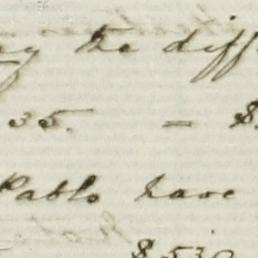 the diff
35. = $
Pablo have
$530